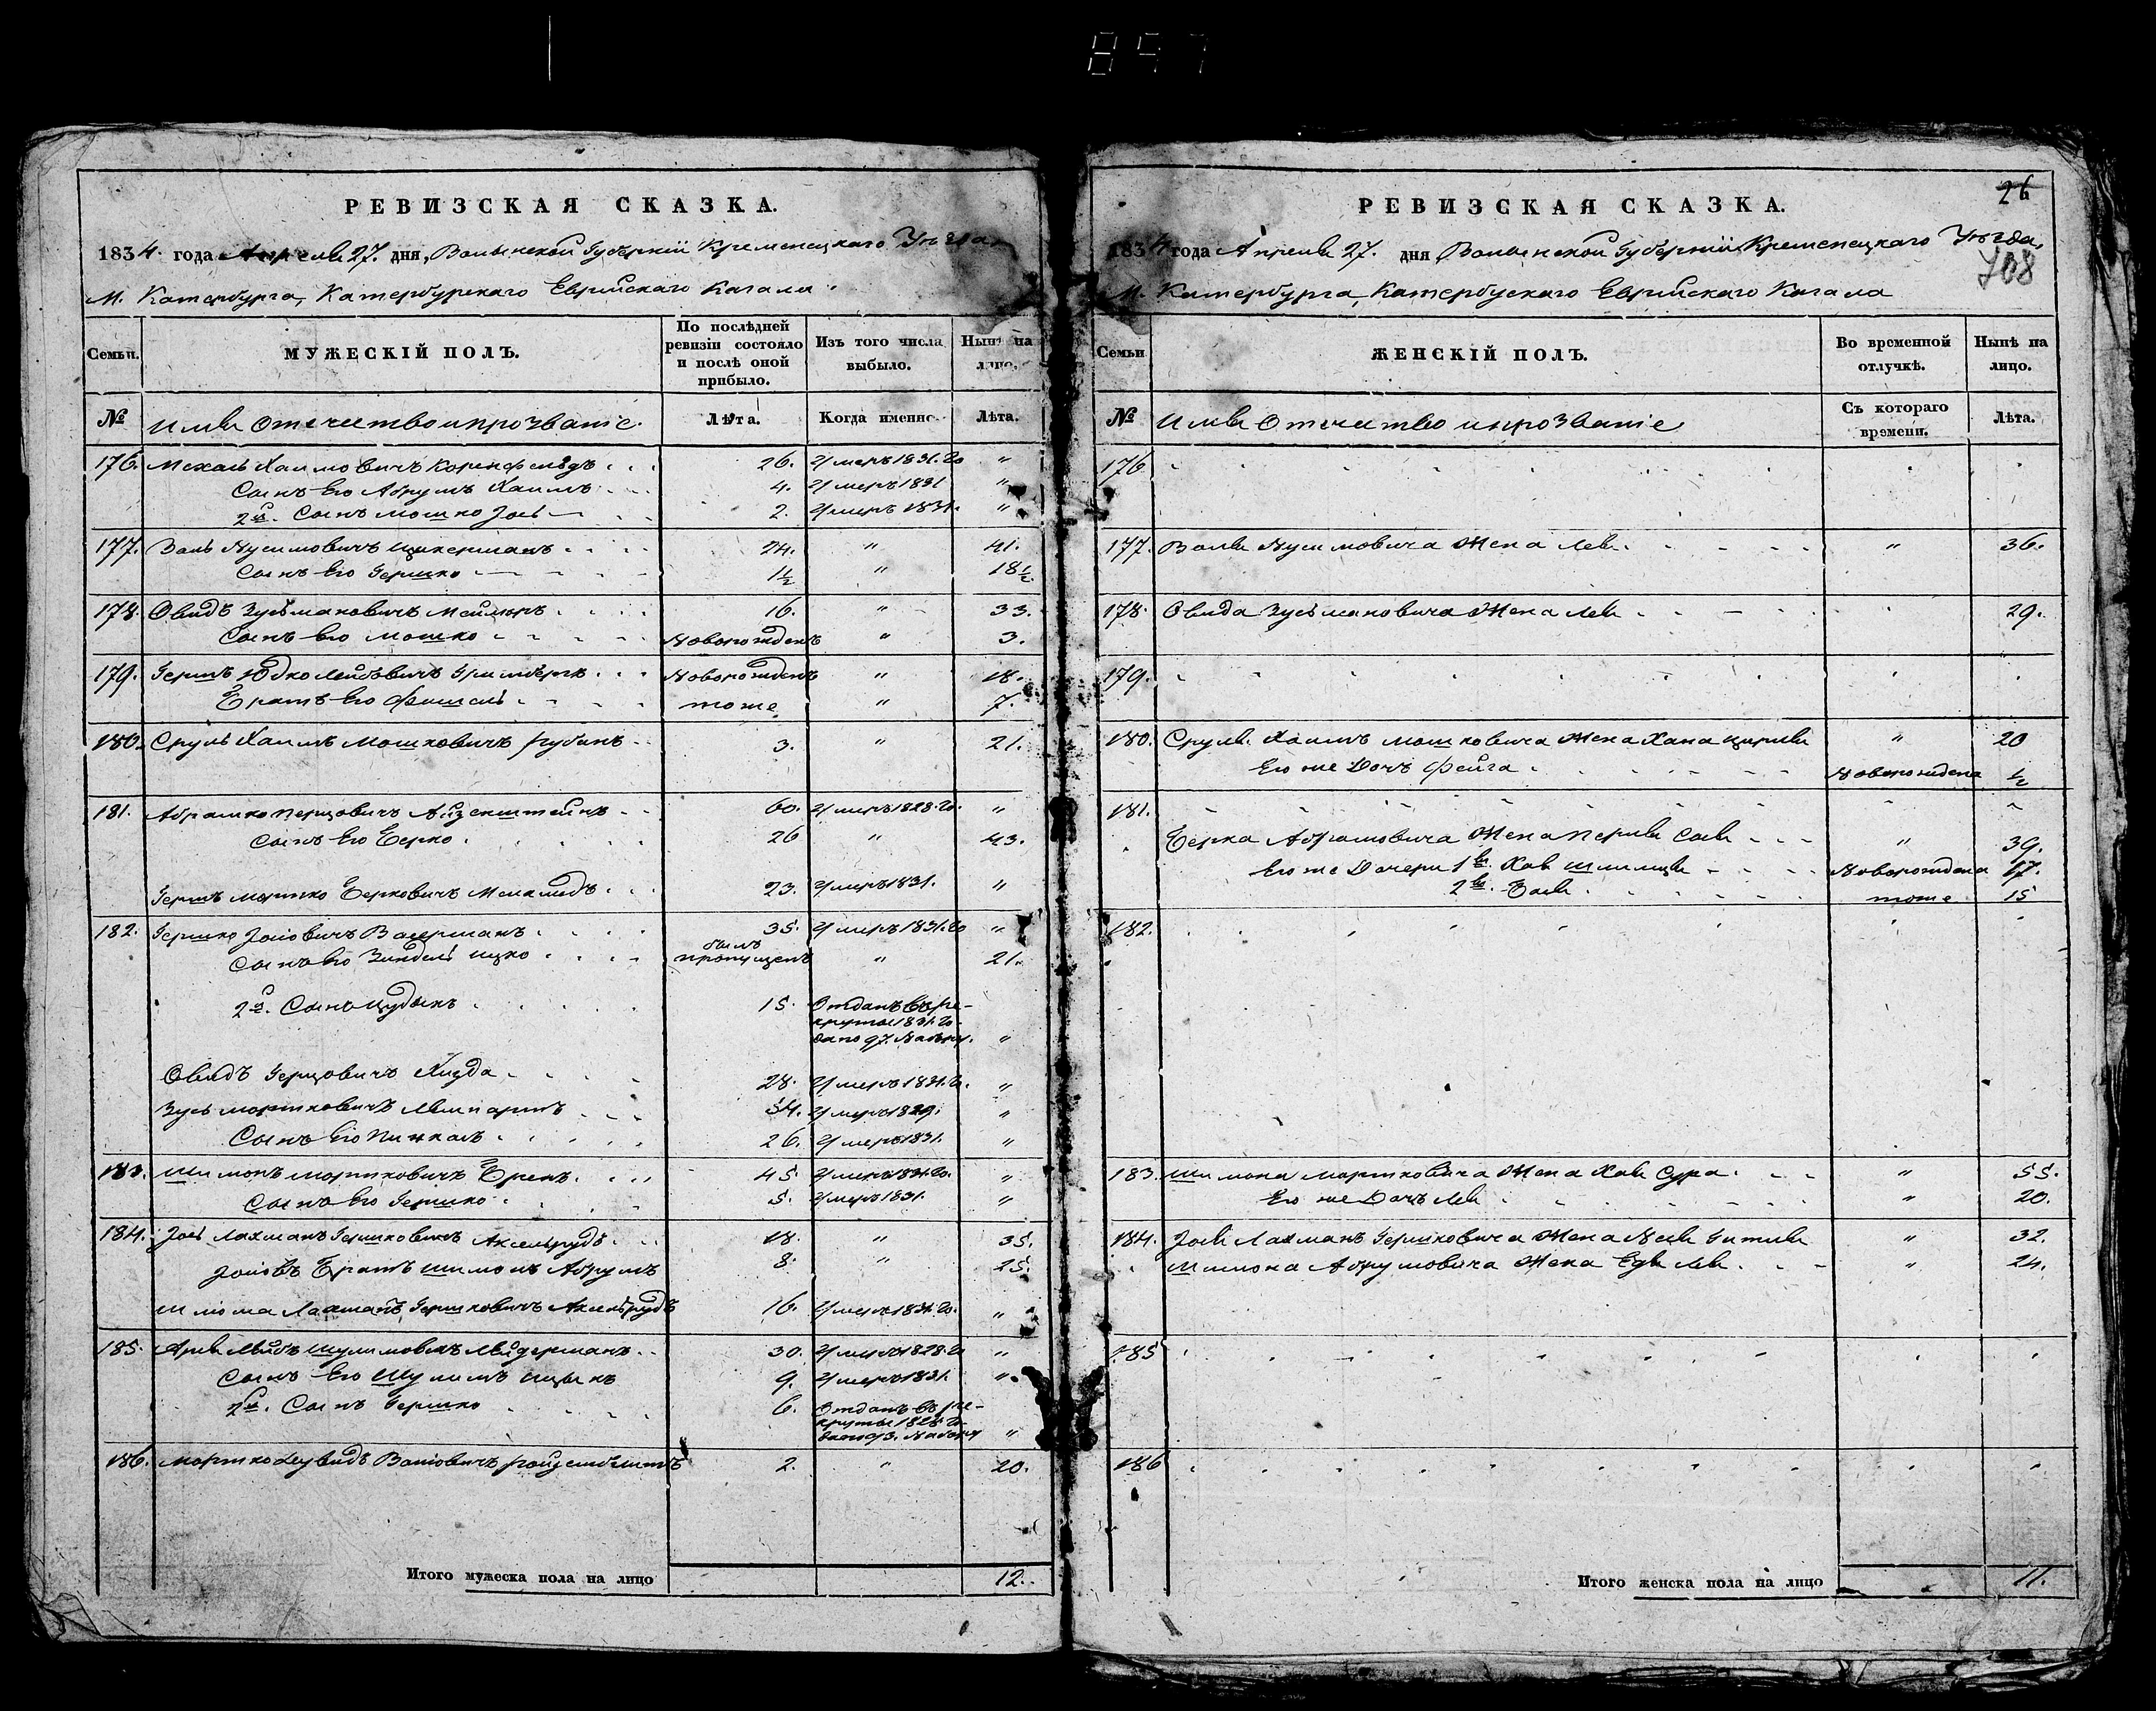 897
РЕВИЗСКАЯ СКАЗКА.
1834. года Апреля 27. дня, Волынской Губерніи Кременецкаго Уѣзда
М. Катербурга, Катербурскаго Еврейскаго Кагала.
Семьи. МУЖЕСКІЙ ПОЛЪ. По послѣдней ревизіи состояло и послѣ оной прибыло. Изъ того числа выбыло. Нынѣ на лицо.
№ Имя Отечество и прозваніе. Лѣта. Когда именно. Лѣта.
176. Мехаль Хаимовичъ Коренфельдъ 26. Умеръ 1831. Го "
Сынъ Его Абрумъ Хаимъ 4. Умеръ 1831 "
2й. Сынъ МошкоJось 2. Умеръ 1831. "
177. Воль Нусимовичъ Цукерманъ 24. " 41.
Сынъ Его Гершко 1½ " 18½.
178. Овидъ Зусьмановичъ 16. " 33.
Сынъ Его Мошко Новорожденъ " 3.
179. Гершъ Юдко Лейбовичъ Гримбергъ Новорожденъ " 18.
Братъ Его Фишель тоже " 7.
180. Сруль Хаимъ Мошковичъ Рубинъ 3. " 21.
181. Абрамко Перцовичъ Айзенштейнъ 60. Умеръ 1828. Го. "
Сынъ Его Берко 26 " 43.
Гершъ Мортко Берковичъ Меламедъ 23. Умеръ 1831. "
182. Гершко Jосіовичъ Васерманъ 35. Умеръ 1831. Го "
Сынъ Его Зиндель Ицко былъ пропущенъ " 21.
2й. Сынъ Цудыкъ 15. Отданъ въ ре-
круты 1831. Го-
да по 97. Набору. "
Овидъ Герцовичъ 28. Умеръ 1831. Го. "
Зусь Мортковичъ 54. Умеръ 1829. "
Сынъ Его Пинкасъ 26. Умеръ 1831. "
183. Шимонъ Мортковичъ 45. Умеръ 1831. Го. "
Сынъ Его Гершко 5. Умеръ 1831. "
184. Jось Лахманъ Гершковичъ Аксельрудъ 18. " 35.
Jосіовъ Братъ Шимонъ Абрумъ 8. " 25.
Шліома Лахманъ Гершковичъ Аксельрудъ 16. Умеръ 1831. Го. "
185. Арія Лейбъ Шулимовичъ Лейдерманъ 30. Умеръ 1828. Го "
Сынъ Его Шулимъ Ицыкъ 9. Умеръ 1831. "
2й. Сынъ Гершко 6. Отданъ въ ре-
круты 1828 Го-
да по 93. Набору "
186. Мортко Деувидъ Воліовичъ 2. " 20.
Итого мужеска пола на лицо 12.
26
РЕВИЗСКАЯ СКАЗКА.
1834 года Апреля 27. дня Волынской Губерніи Кременецкаго Уѣзда,
708
М. Катербурга, Катербускаго Еврейскаго Кагала
Семьи ЖЕНСКІЙ ПОЛЪ. Во временной отлучкѣ. Нынѣ на лицо.
№ Имя Отечество и прозваніе Съ котораго времени. Лѣта.
176
177. Воля Нусимовича Жена Лея " 36.
178. Овида Зусьмановича Жена Лея 29.
179.
180. Сруля Хаимъ Мошковича Жена Хана Цирля " 20
Его же Дочъ Фейга Новорождена ½
181.
Берка Абрамовича Жена Перля Сося " 39.
Его же Дочери 1я. Хая Новорождена 17.
2я. Бася тоже 15
182.
183. Шимона Мортковича Жена Хая Сура " 55.
Его же Дочъ Лея " 20.
184. Jося Лахманъ Гершковича Жена Неся Гитля " 32.
Шимона Абрумовича Жена Едя Лея " 24.
185
186
Итого женска пола на лицо 11.